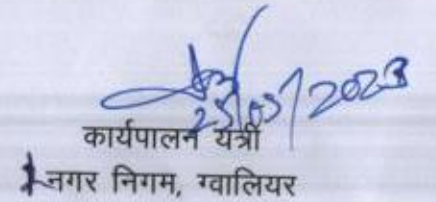 25/05/2023
कार्यपालन यंत्री
नगर निगम, ग्वालियर